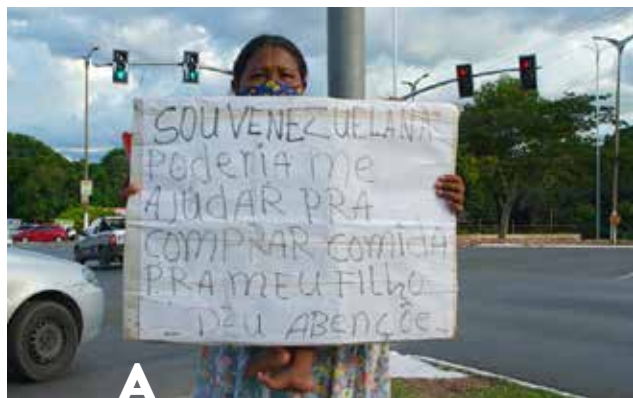 SOU VENEZUELANA
Poderia me
AJUDAR PRA
COMPRAR COMIDA
PRA MEU FILhO
_ DEU ABENÇÕE_
A